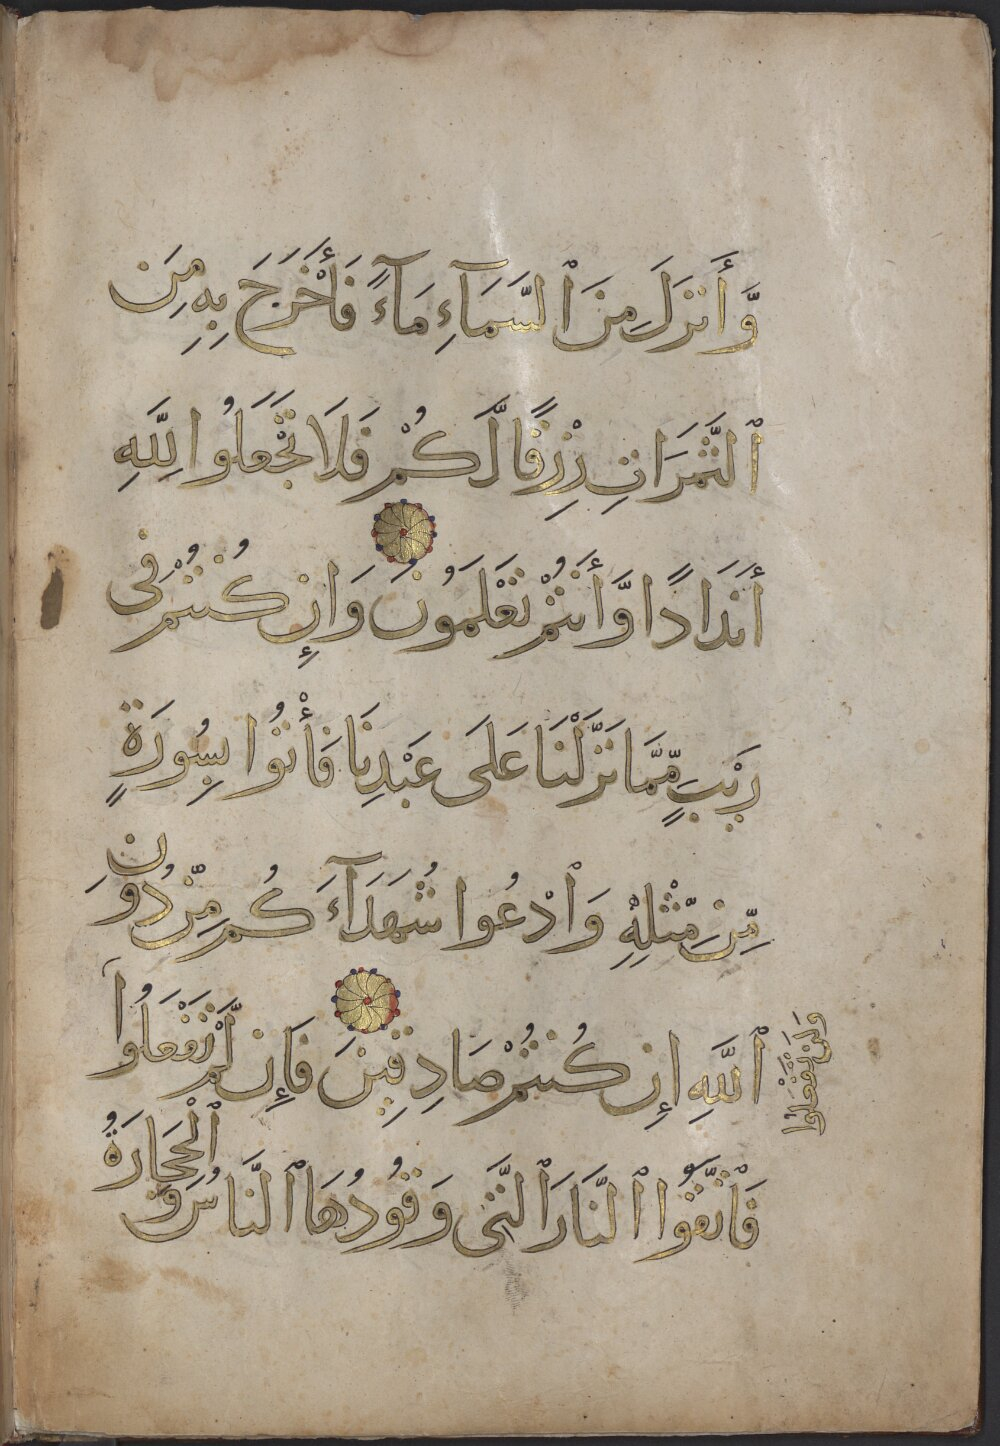 وَّأَنزَلَ مِنَ ٱلسَّمَآءِ مَآءً فَأَخْرَجَ بِهِ مِنَ
ٱلثَّمَرَاتِ رِزْقًا لَّكُمْ فَلَا تَجْعَلُوا لِلَّهِ
أَندَادًا وَّأَنتُمْ تَعْلَمُونَ وَإِن كُنتُمْ فِى
رَيْبٍ مِّمَّا نَزَّلْنَا عَلَى عَبْدِنَا فَأْتُوا بِسُورَةٍ
مِّن مِّثْلِهِ وَٱدْعُوا شُهَدَآءَكُم مِّن دُونِ
ٱللَّهِ إِن كُنتُمْ صَادِقِينَ فَإِن لَّمْ تَفْعَلُوا
وَلَن تَفْعَلُوا
فَٱتَّقُوا ٱلنَّارَ ٱلَّتِى وَقُودُهَا ٱلنَّاسُ وَ
ٱلْحِجَارَةُ